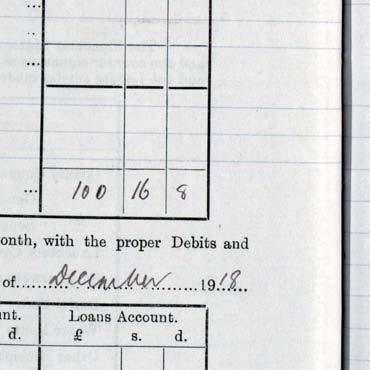 ...
..
...
... 100 16 8
onth, with the proper Debits and
of......December...........1918...
nt. Loans Account.
d. £ s. d.